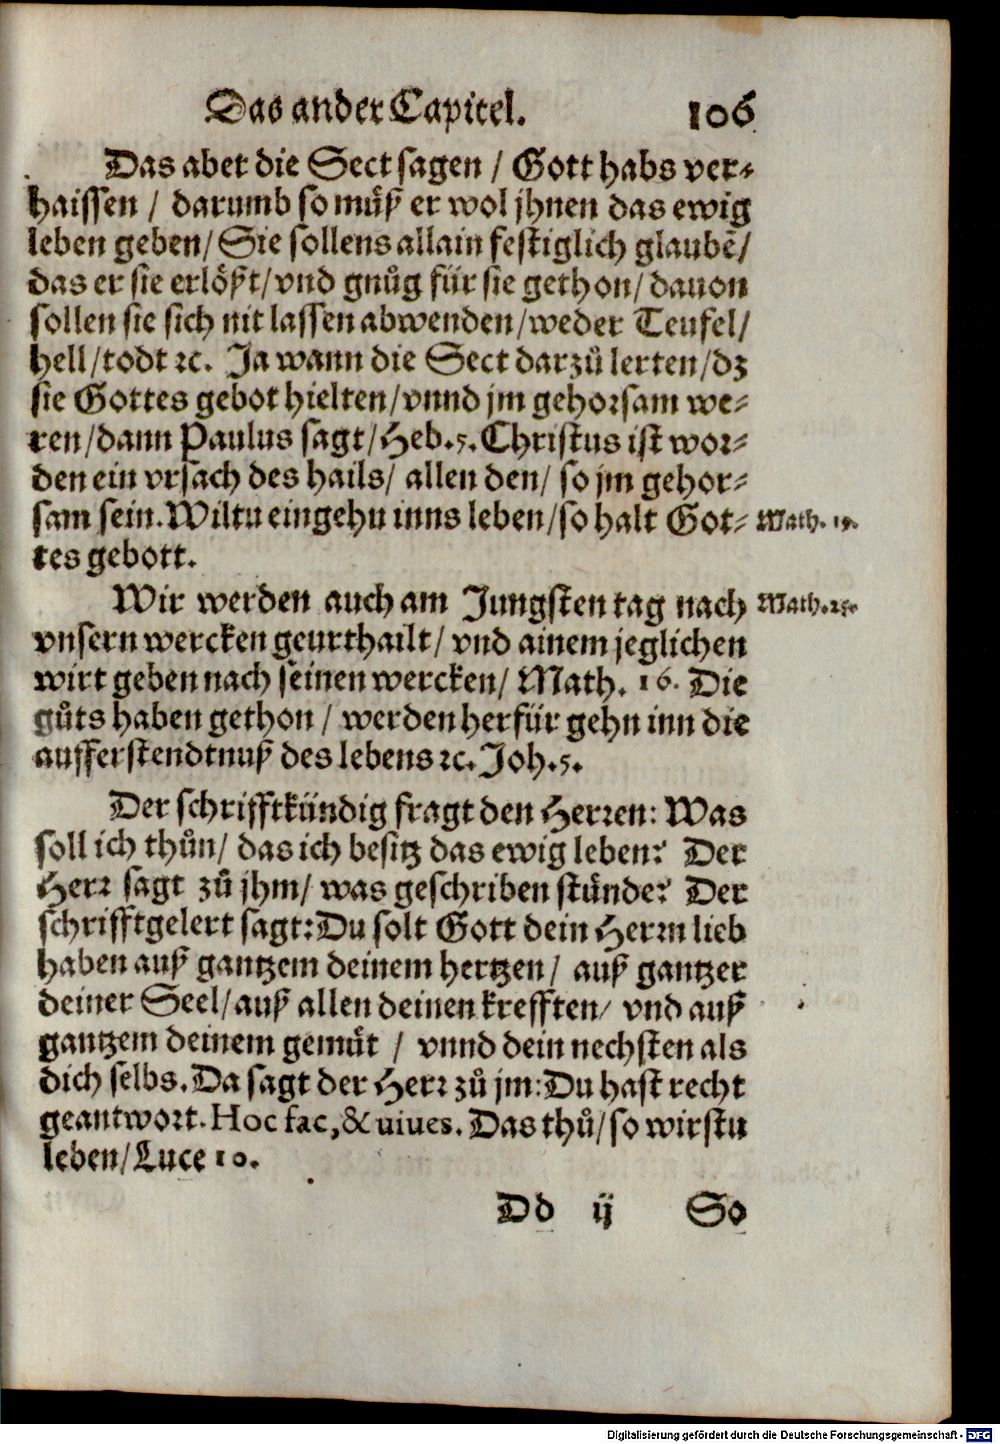 Das ander Capitel. 106
Das aber die Sect sagen / Gott habs ver⸗
haissen / darumb so muͤß er wol jhnen das ewig
leben geben / Sie sollens allain festiglich glaubẽ /
das er sie erloͤßt / vnd gnuͦg für sie gethon / dauon
sollen sie sich nit lassen abwenden / weder Teufel /
hell / todt ꝛc. Ja wann die Sect darzuͦ lerten / dz
sie Gottes gebot hielten / vnnd jm gehorsam we⸗
ren / dann Paulus sagt / Heb. 5. Christus ist wor⸗
den ein vrsach des hails / allen den / so jm gehor⸗
sam sein. Wiltu eingehn inns leben / so halt Got⸗ Math. 19.
tes gebott.
Wir werden auch am Jungsten tag nach Math. 25.
vnsern wercken geurthailt / vnd ainem jeglichen
wirt geben nach seinen wercken / Math. 16. Die
guͦts haben gethon / werden herfür gehn inn die
aufferstendtnuß des lebens ꝛc. Joh. 5.
Der schrifftkündig fragt den Herren: Was
soll ich thuͦn / das ich besitz das ewig leben? Der
Herr sagt zuͦ jhm / was geschriben stünde? Der
schrifftgelert sagt: Du solt Gott dein Herrn lieb
haben auß gantzem deinem hertzen / auß gantzer
deiner Seel / auß allen deinen krefften / vnd auß
gantzem deinem gemuͤt / vnnd dein nechsten als
dich selbs. Da sagt der Herr zuͦ jm: Du hast recht
geantwort. Hoc fac, & uiues. Das thuͦ / so wirstu
leben / Luce 10.
Dd ij So
Digitalisierung gefördert durch die Deutsche Forschungsgemeinschaft - DFG